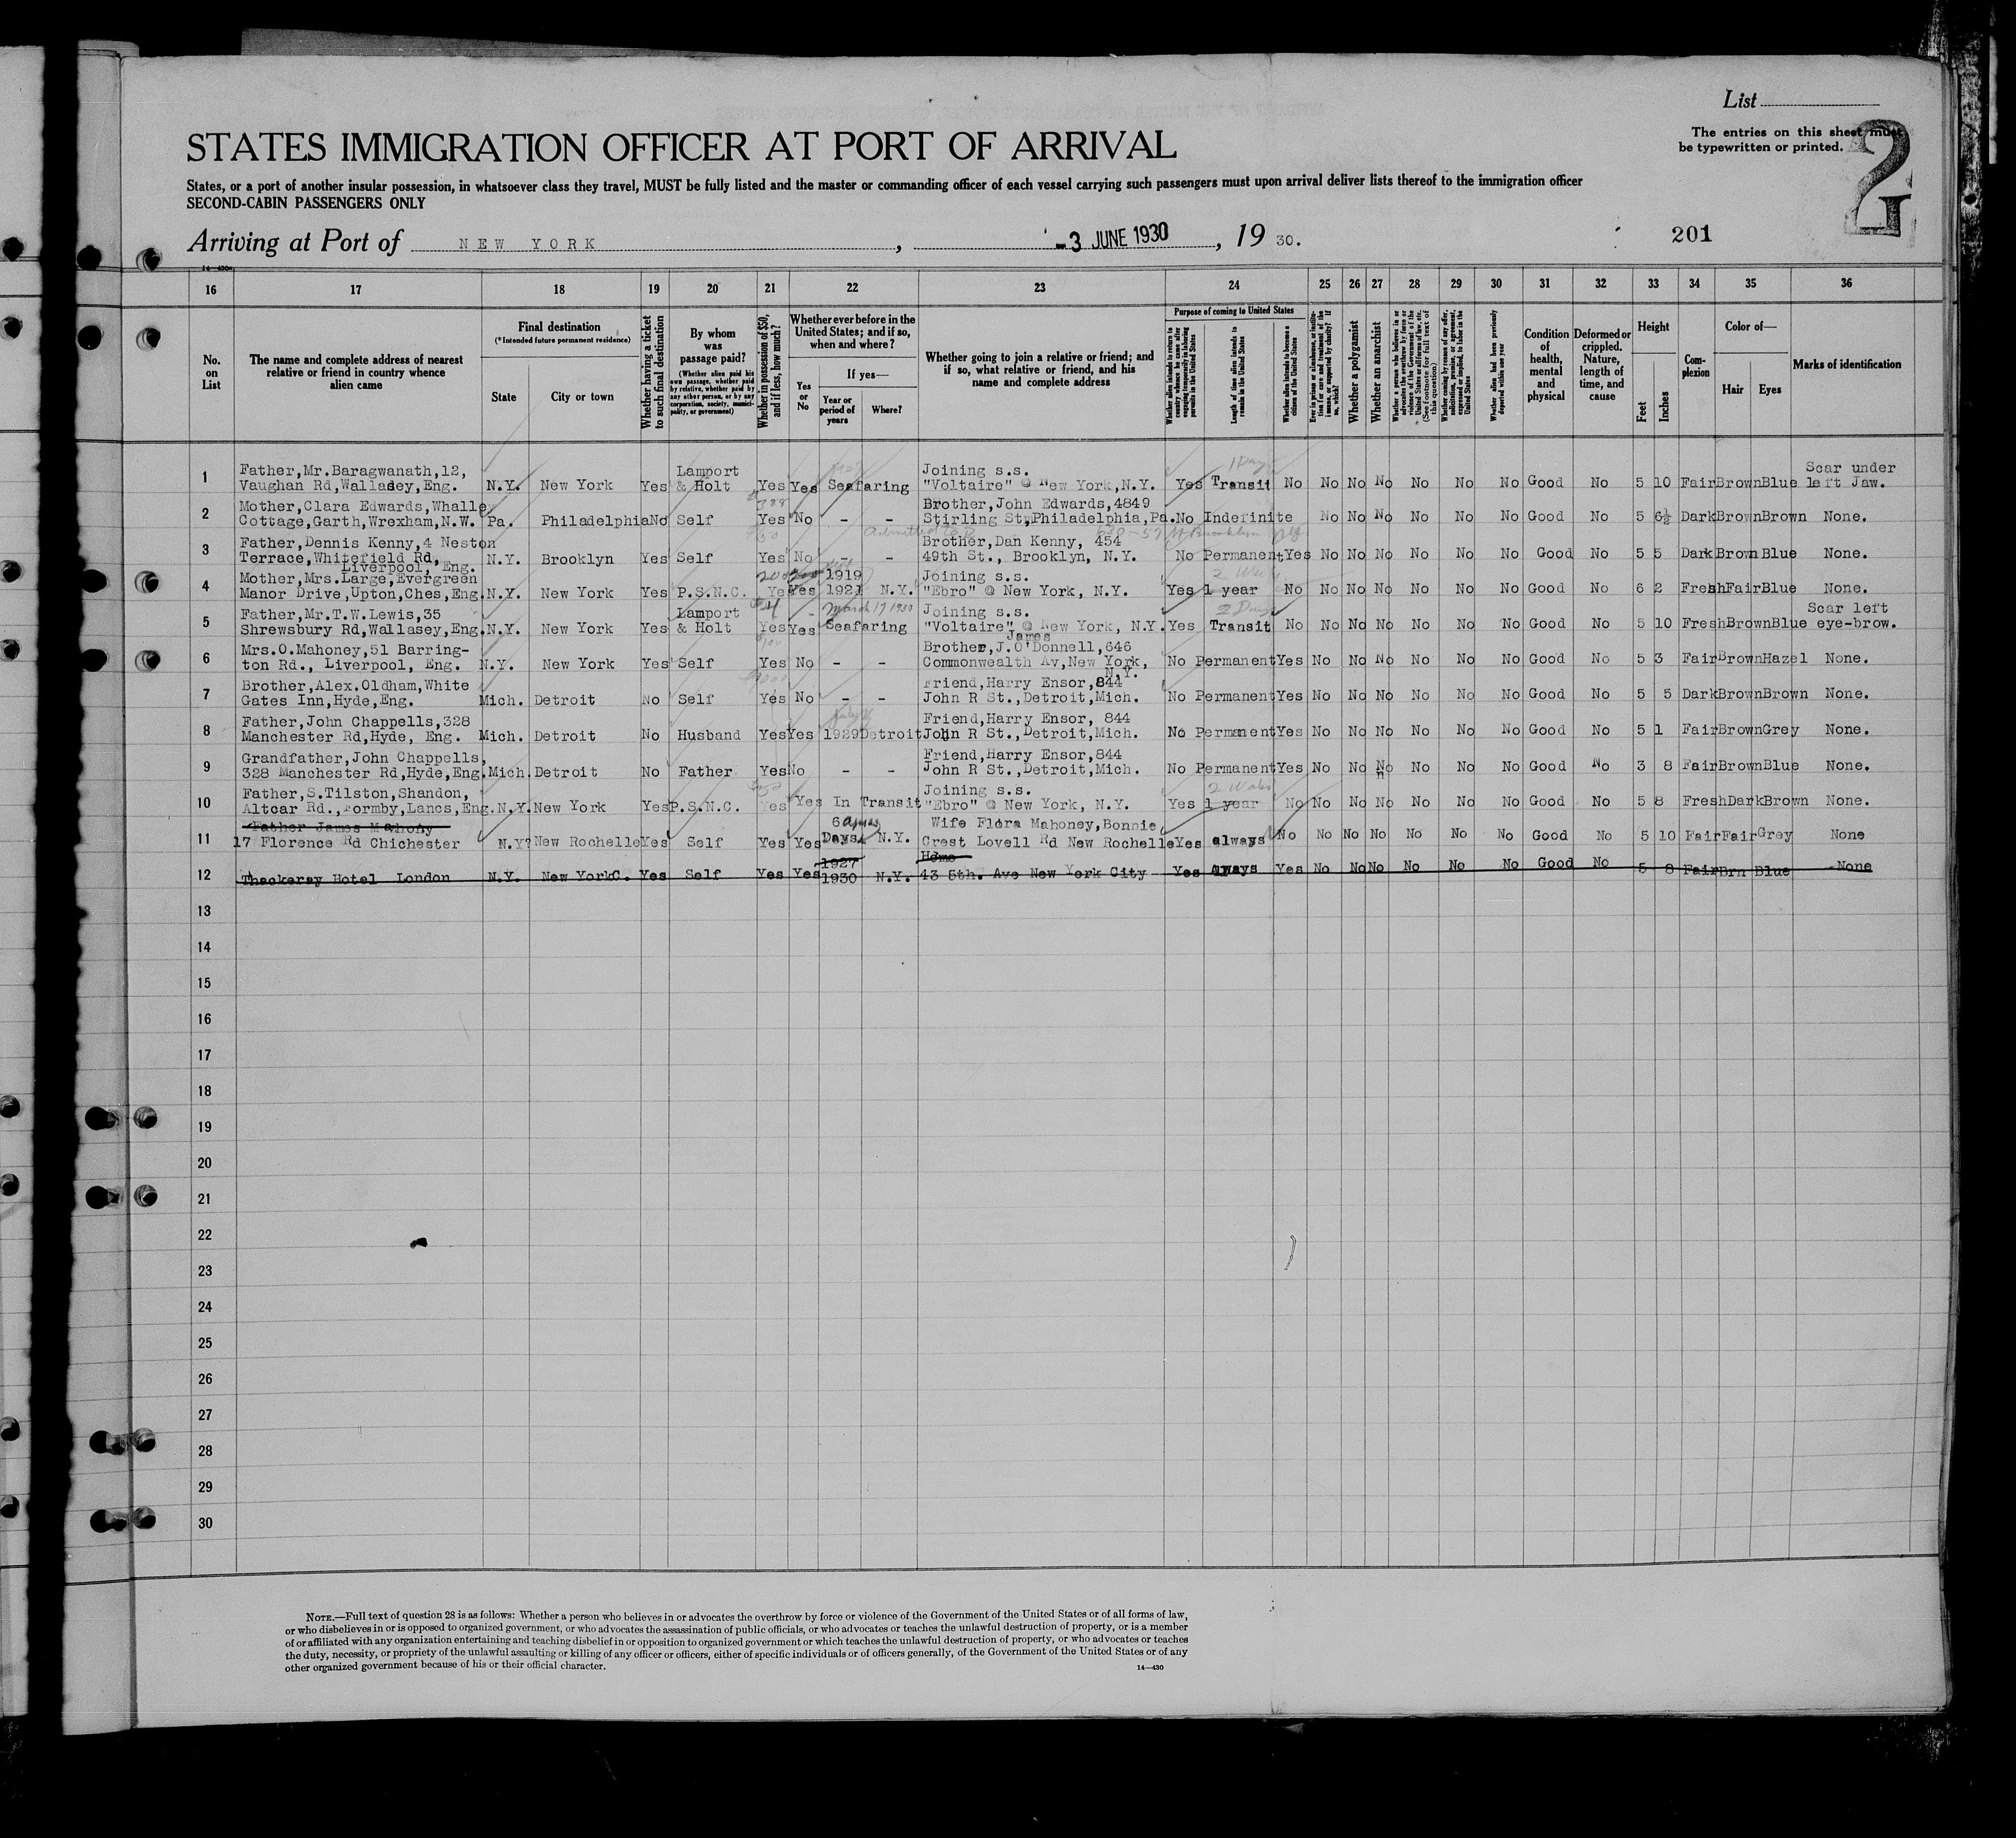 List
The entries on this sheet must
be typewritten or printed.
2
STATES IMMIGRATION OFFICER AT PORT OF ARRIVAL
States, or a port of another insular possession, in whatsoever class they travel, MUST be fully listed and the master or commanding officer of each vessel carrying such passengers must upon arrival deliver lists thereof to the immigration officer
SECOND-CABIN PASSENGERS ONLY
Arriving at Port of NEW YORK, -3 JUNE 1930, 19 30.
201
14-430a
16 17 18 19 20 21 22 23 24 25 26 27 28 29 30 31 32 33 34 35 36
No. on List
The name and complete address of nearest relative or friend in country whence alien came
Final destination
(*Intended future permanent residence)
State
City or town
Whether having a ticket to such final destination
By whom was passage paid?
(Whether alien paid his own passage, whether paid by relative, whether paid by any other person, or by any corporation, society, municipality, or government)
Whether in possession of $50, and if less, how much?
Whether ever before in the United States; and if so, when and where?
Yes or No
If yes—
Year or period of years
Where?
Whether going to join a relative or friend; and if so, what relative or friend, and his name and complete address
Purpose of coming to United States
Whether alien intends to return to country whence he came after engaging temporarily in laboring pursuits in the United States
Length of time alien intends to remain in the United States
Whether alien intends to become a citizen of the United States
Ever in prison or almshouse, or institution for care and treatment of the insane, or supported by charity? If so, which?
Whether a polygamist
Whether an anarchist
Whether a person who believes in or advocates the overthrow by force or violence of the Government of the United States or all forms of law, etc. (See footnote for full text of this question)
Whether coming by reason of any offer, solicitation, promise, or agreement, expressed or implied, to labor in the United States
Whether alien had been previously deported within one year
Condition of health, mental and physical
Deformed or crippled. Nature, length of time, and cause
Height
Feet
Inches
Complexion
Color of—
Hair
Eyes
Marks of identification
1 Father,Mr.Baragwanath,12, Vaughan Rd,Wallasey,Eng. N.Y. New York Yes Lamport & Holt Yes Yes Seafaring Joining s.s. "Voltaire" @ New York,N.Y. Yes Transit No No No No No No No Good No 5 10 Fair Brown Blue Scar under left Jaw.
2 Mother,Clara Edwards,Whalle Cottage,Garth,Wrexham,N.W. Pa. Philadelphia No Self Yes No - - Brother,John Edwards,4849 Stirling St,Philadelphia,Pa. No Indefinite No No No No No No Good No 5 6½ Dark Brown Brown None.
3 Father,Dennis Kenny,4 Neston Terrace,Whitefield Rd, Liverpool, Eng. N.Y. Brooklyn Yes Self Yes No - - Brother,Dan Kenny, 454 49th St., Brooklyn, N.Y. No Permanent Yes No No No No No No Good No 5 5 Dark Brown Blue None.
4 Mother,Mrs.Large,Evergreen Manor Drive,Upton,Ches,Eng. N.Y. New York Yes P.S.N.C. Yes Yes 1919 1921 N.Y. Joining s.s. "Ebro" @ New York, N.Y. Yes 1 year No No No No No No No Good No 6 2 Fresh Fair Blue None.
5 Father,Mr.T.W.Lewis,35 Shrewsbury Rd,Wallasey,Eng. N.Y. New York Yes Lamport & Holt Yes Yes March 17 1930 Seafaring Joining s.s. "Voltaire" @ New York, N.Y. Yes Transit 2 Days No No No No No No No Good No 5 10 Fresh Brown Blue Scar left eye-brow.
6 Mrs.O.Mahoney,51 Barrington Rd., Liverpool, Eng. N.Y. New York Yes Self Yes No - - Brother,J.O'Donnell,646 James Commonwealth Av,New York, N.Y. No Permanent Yes No No No No No No Good No 5 3 Fair Brown Hazel None.
7 Brother,Alex.Oldham,White Gates Inn,Hyde,Eng. Mich. Detroit No Self Yes No - - Friend,Harry Ensor,844 John R St.,Detroit,Mich. No Permanent Yes No No No No No No Good No 5 5 Dark Brown Brown None.
8 Father,John Chappells,328 Manchester Rd,Hyde, Eng. Mich. Detroit No Husband Yes Yes 1929 Detroit Friend,Harry Ensor, 844 John R St.,Detroit,Mich. No Permanent Yes No No No No No No Good No 5 1 Fair Brown Grey None.
9 Grandfather,John Chappells, 328 Manchester Rd,Hyde,Eng. Mich. Detroit No Father Yes No - - Friend,Harry Ensor,844 John R St.,Detroit,Mich. No Permanent Yes No No No No No No Good No 3 8 Fair Brown Blue None.
10 Father,S.Tilston,Shandon, Altcar Rd.,Formby,Lancs,Eng. N.Y. New York Yes P.S.N.C. Yes Yes In Transit Joining s.s. "Ebro" @ New York, N.Y. Yes 1 year No No No No No No No Good No 5 8 Fresh Dark Brown None.
11 Father James Mahony 17 Florence Rd Chichester N.Y. New Rochelle Yes Self Yes Yes 6 Days N.Y. Wife Flora Mahoney,Bonnie Crest Lovell Rd New Rochelle Yes always No No No No No No No Good No 5 10 Fair Fair Grey None
12 Thackeray Hotel London N.Y. New York C. Yes Self Yes Yes 1927 1930 N.Y. Home 43 5th. Ave New York City Yes always Yes No No No No No No Good No 5 8 Fair Brn Blue None
13
14
15
16
17
18
19
20
21
22
23
24
25
26
27
28
29
30
NOTE.—Full text of question 28 is as follows: Whether a person who believes in or advocates the overthrow by force or violence of the Government of the United States or of all forms of law,
or who disbelieves in or is opposed to organized government, or who advocates the assassination of public officials, or who advocates or teaches the unlawful destruction of property, or is a member
of or affiliated with any organization entertaining and teaching disbelief in or opposition to organized government or which teaches the unlawful destruction of property, or who advocates or teaches
the duty, necessity, or propriety of the unlawful assaulting or killing of any officer or officers, either of specific individuals or of officers generally, of the Government of the United States or of any
other organized government because of his or their official character.
14—430